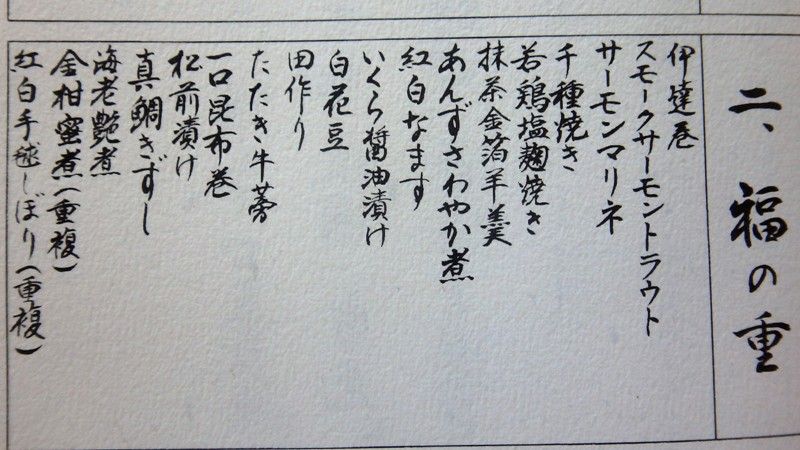 二、福の重
伊達巻
スモークサーモントラウト
サーモンマリネ
千種焼き
若鶏塩麹焼き
抹茶金箔羊羹
あんずさわやか煮
紅白なます
いくら醤油漬け
白花豆
田作り
たたき牛蒡
一口昆布巻
松前漬け
真鯛きずし
海老艶煮
金柑蜜煮(重複)
紅白手毬しぼり(重複)